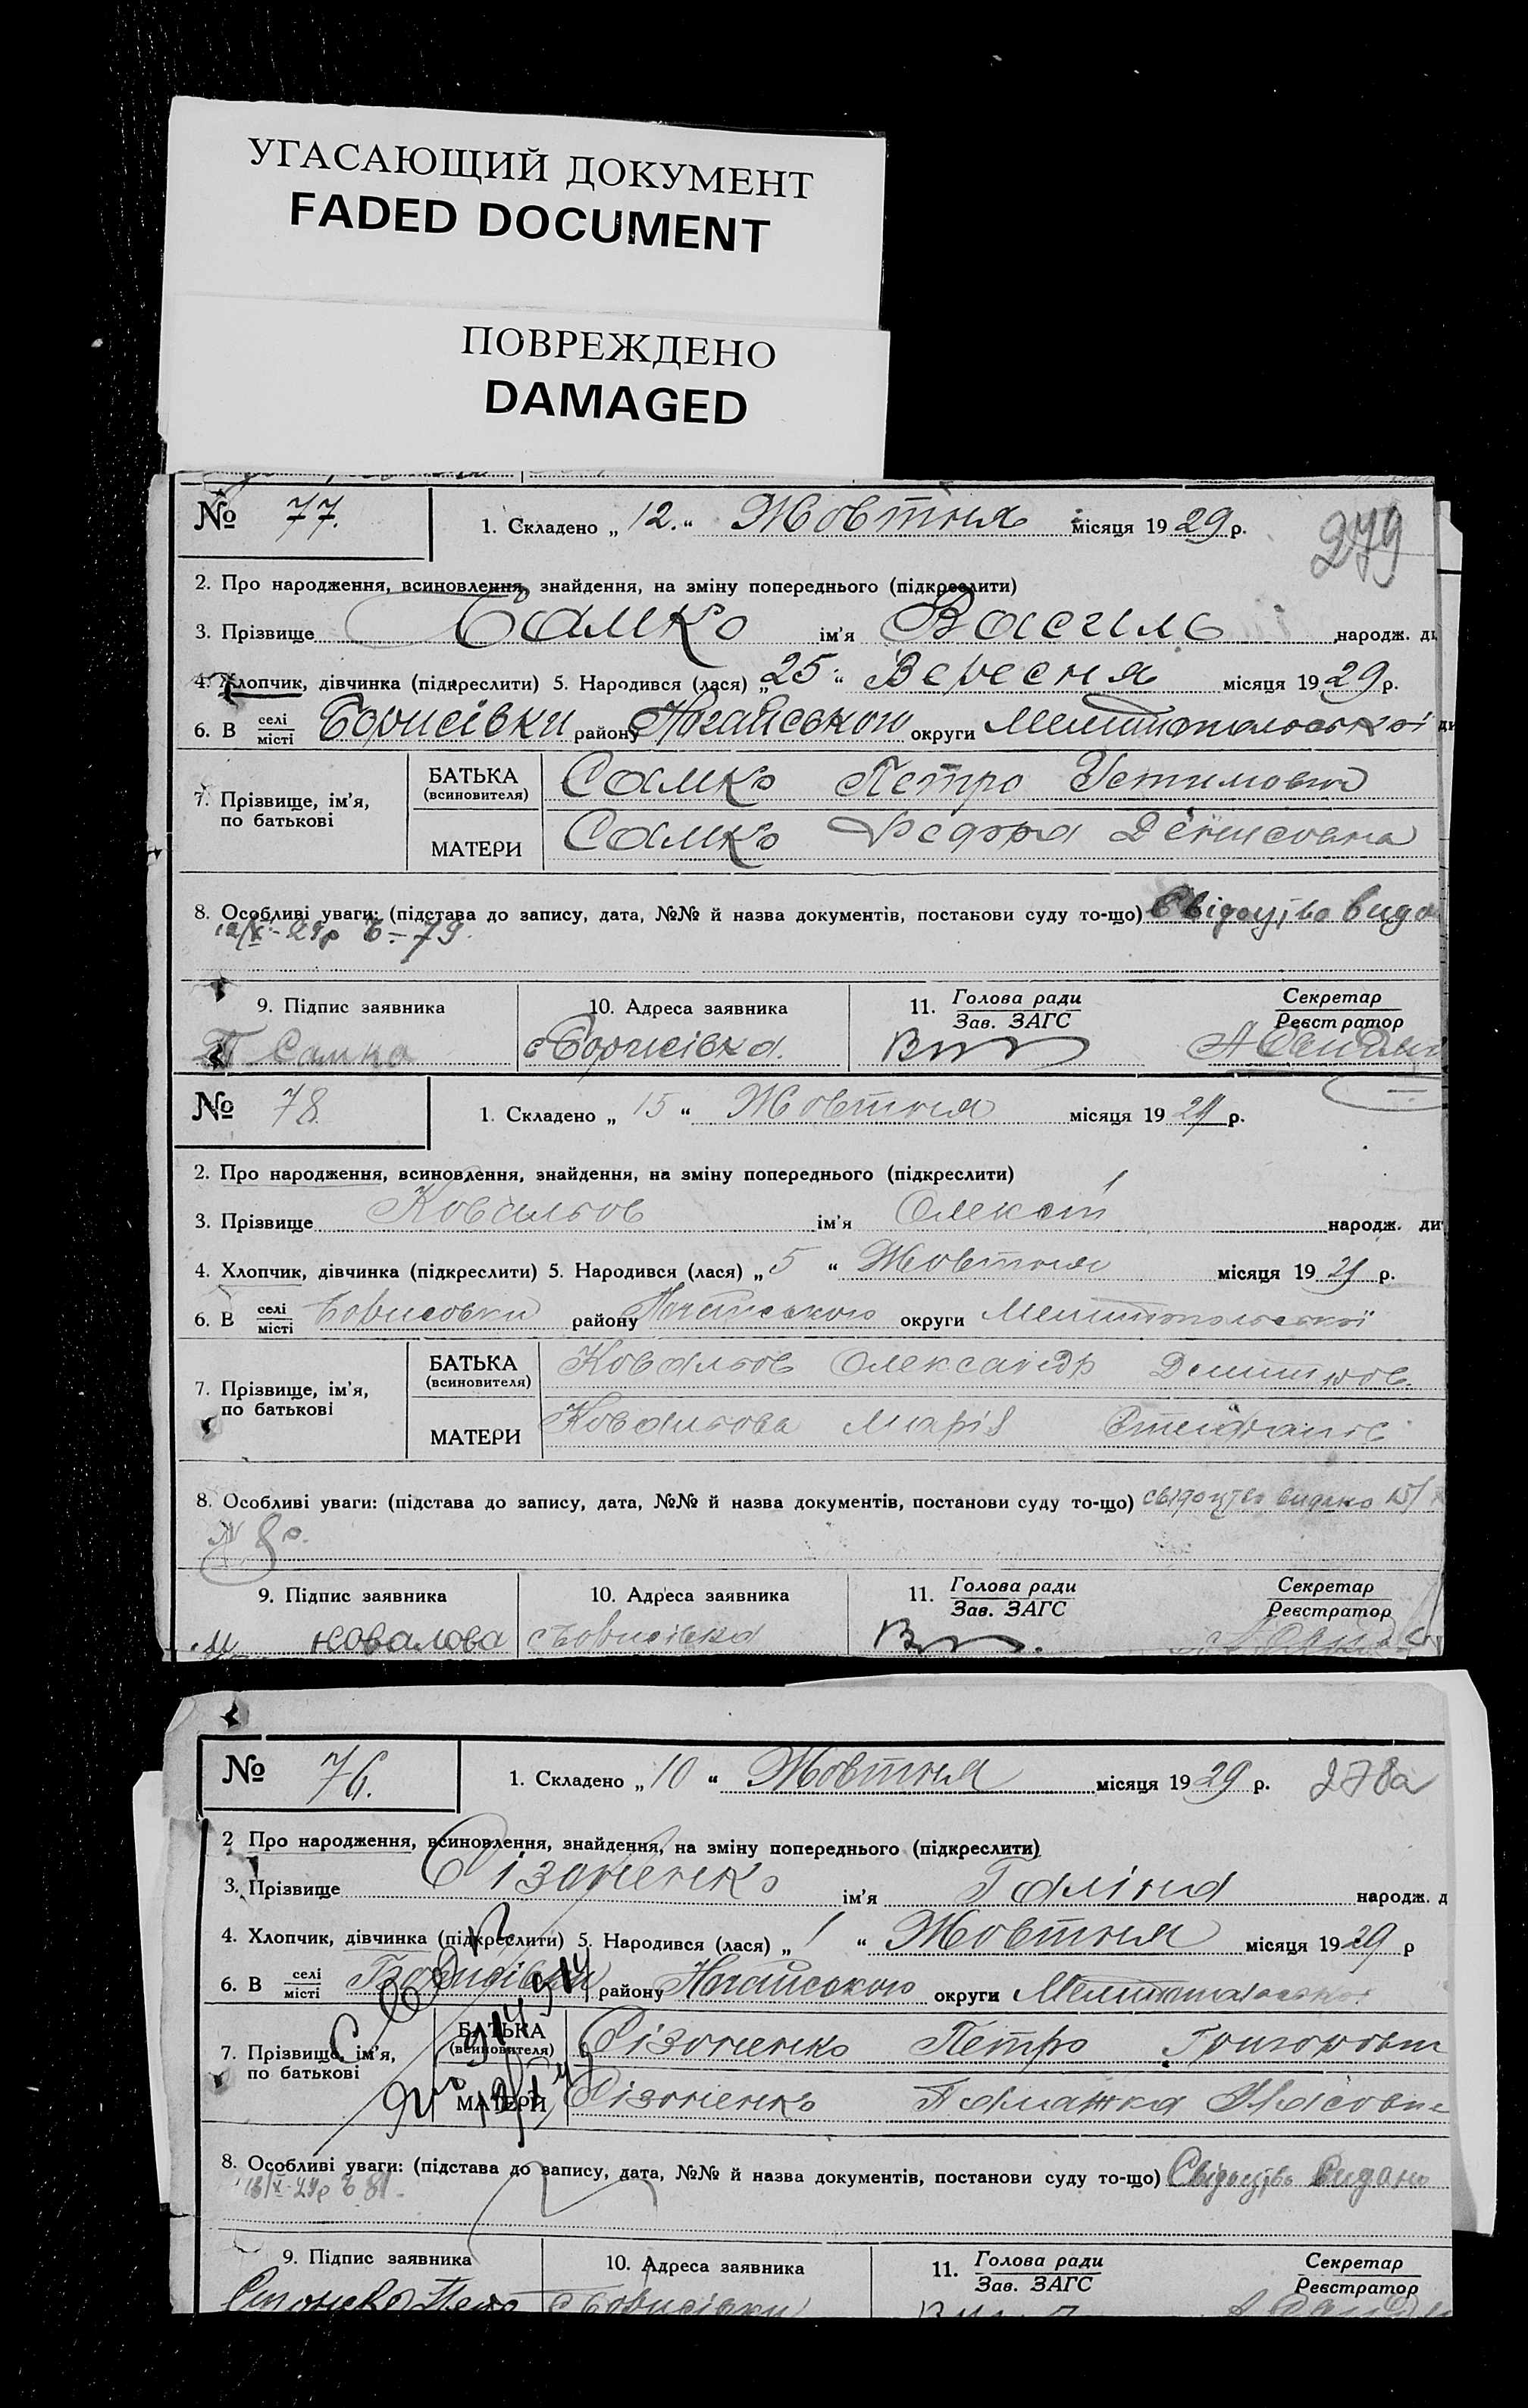 УГАСАЮЩИЙ ДОКУМЕНТ
FADED DOCUMENT
ПОВРЕЖДЕНО
DAMAGED
№ 77. 1. Складено „12.“ Жовтня місяця 1929 р. 279
2. Про народження, всиновлення, знайдення, на зміну попереднього (підкреслити)
3. Прізвище Самко ім'я Василь народж. ди
4. Хлопчик, дівчинка (підкреслити) 5. Народився (лася) „25“ Вересня місяця 1929 р.
6. В селі/місті Борисівки району Ногайського округи Мелитопольської
7. Прізвище, ім'я, по батькові
БАТЬКА (всиновителя) Самко Петро Устимович
МАТЕРИ Самко Федора Денисовна
8. Особливі уваги: (підстава до запису, дата, №№ й назва документів, постанови суду то-що) Свідоцтво видан
12/X-29р 79.
9. Підпис заявника 10. Адреса заявника 11. Голова ради/Зав. ЗАГС Секретар/Реєстратор
П Самко с Борисівка.
№ 78. 1. Складено „15“ Жовтня місяця 1929 р.
2. Про народження, всиновлення, знайдення, на зміну попереднього (підкреслити)
3. Прізвище Ковальов ім'я Олексій народж. ди
4. Хлопчик, дівчинка (підкреслити) 5. Народився (лася) „5“ Жовтня місяця 1929 р.
6. В селі/місті Борисовки району Ногайського округи Мелитопольської
7. Прізвище, ім'я, по батькові
БАТЬКА (всиновителя) Ковальов Олександр
МАТЕРИ Ковальова Марія
8. Особливі уваги: (підстава до запису, дата, №№ й назва документів, постанови суду то-що) свідоцтво видано 15/
9. Підпис заявника 10. Адреса заявника 11. Голова ради/Зав. ЗАГС Секретар/Реєстратор
М Ковалова с Борисівка
№ 76. 1. Складено „10“ Жовтня місяця 1929 р. 278а
2 Про народження, всиновлення, знайдення, на зміну попереднього (підкреслити)
3. Прізвище Сізоненко ім'я Галіна народж. д
4. Хлопчик, дівчинка (підкреслити) 5. Народився (лася) „1“ Жовтня місяця 1929 р
6. В селі/місті Борисівки району Ногайського округи Мелитопольської
7. Прізвище, ім'я, по батькові
БАТЬКА (всиновителя) Сізоненко Петро Григорович
МАТЕРИ Сізоненко Паланжка
8. Особливі уваги: (підстава до запису, дата, №№ й назва документів, постанови суду то-що) Свідоцтво видано
9. Підпис заявника 10. Адреса заявника 11. Голова ради/Зав. ЗАГС Секретар/Реєстратор
с Борисівки